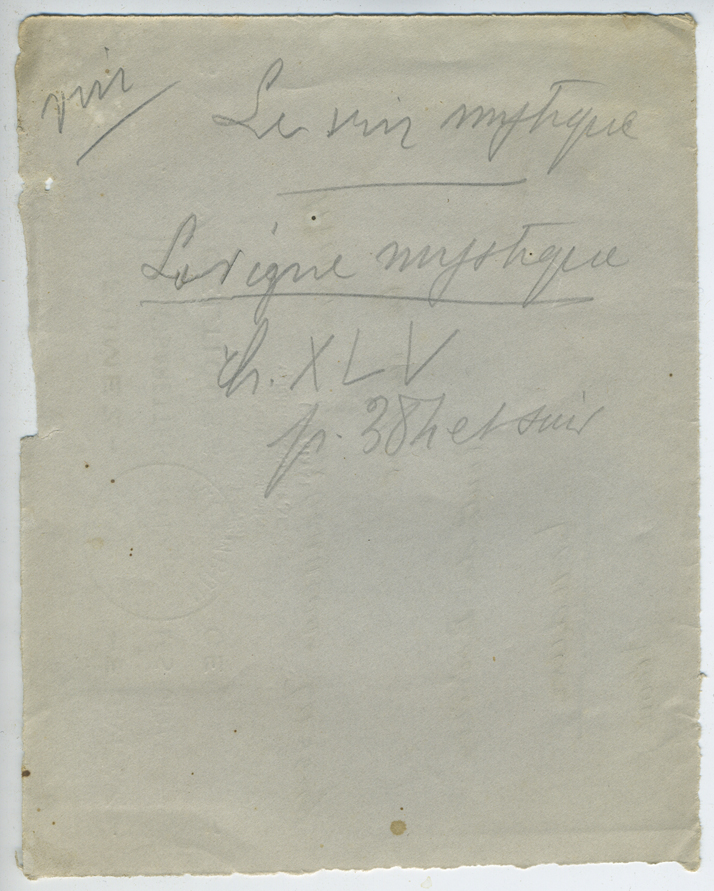 vin
Le vin mystique
La vigne mystique
ch. XLV
et suiv